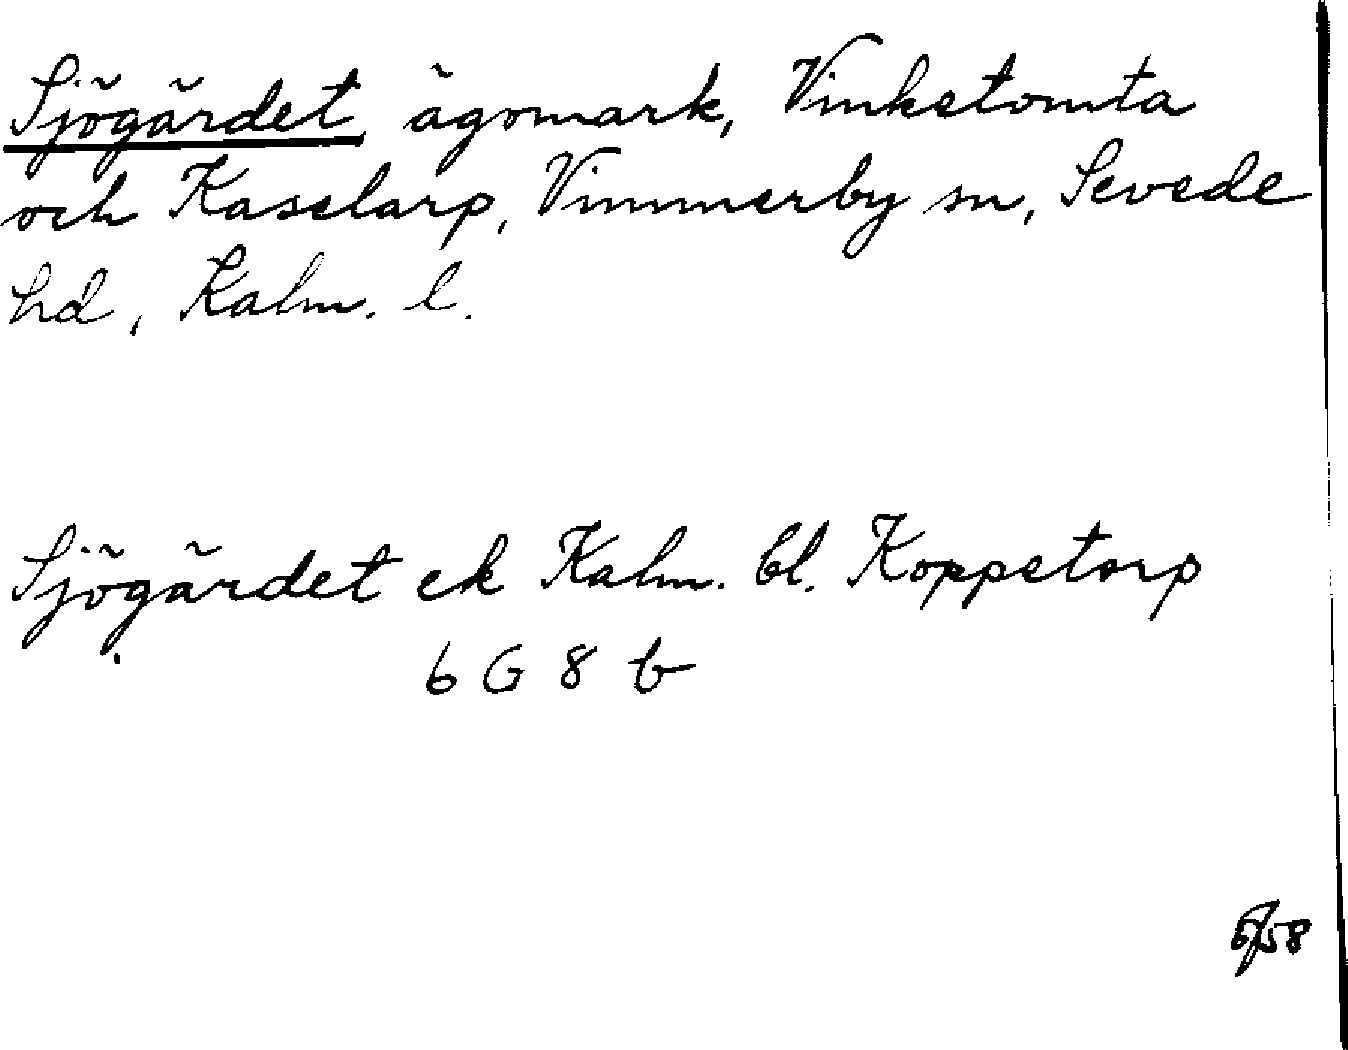 Sjögärdet, ägomark, Vinketomta
och Kaselarp, Vimmerby sn, Sevede
hd, Kalm. l.
Sjögärdet ek Kalm. bl. Koppetorp
6 G 8 b